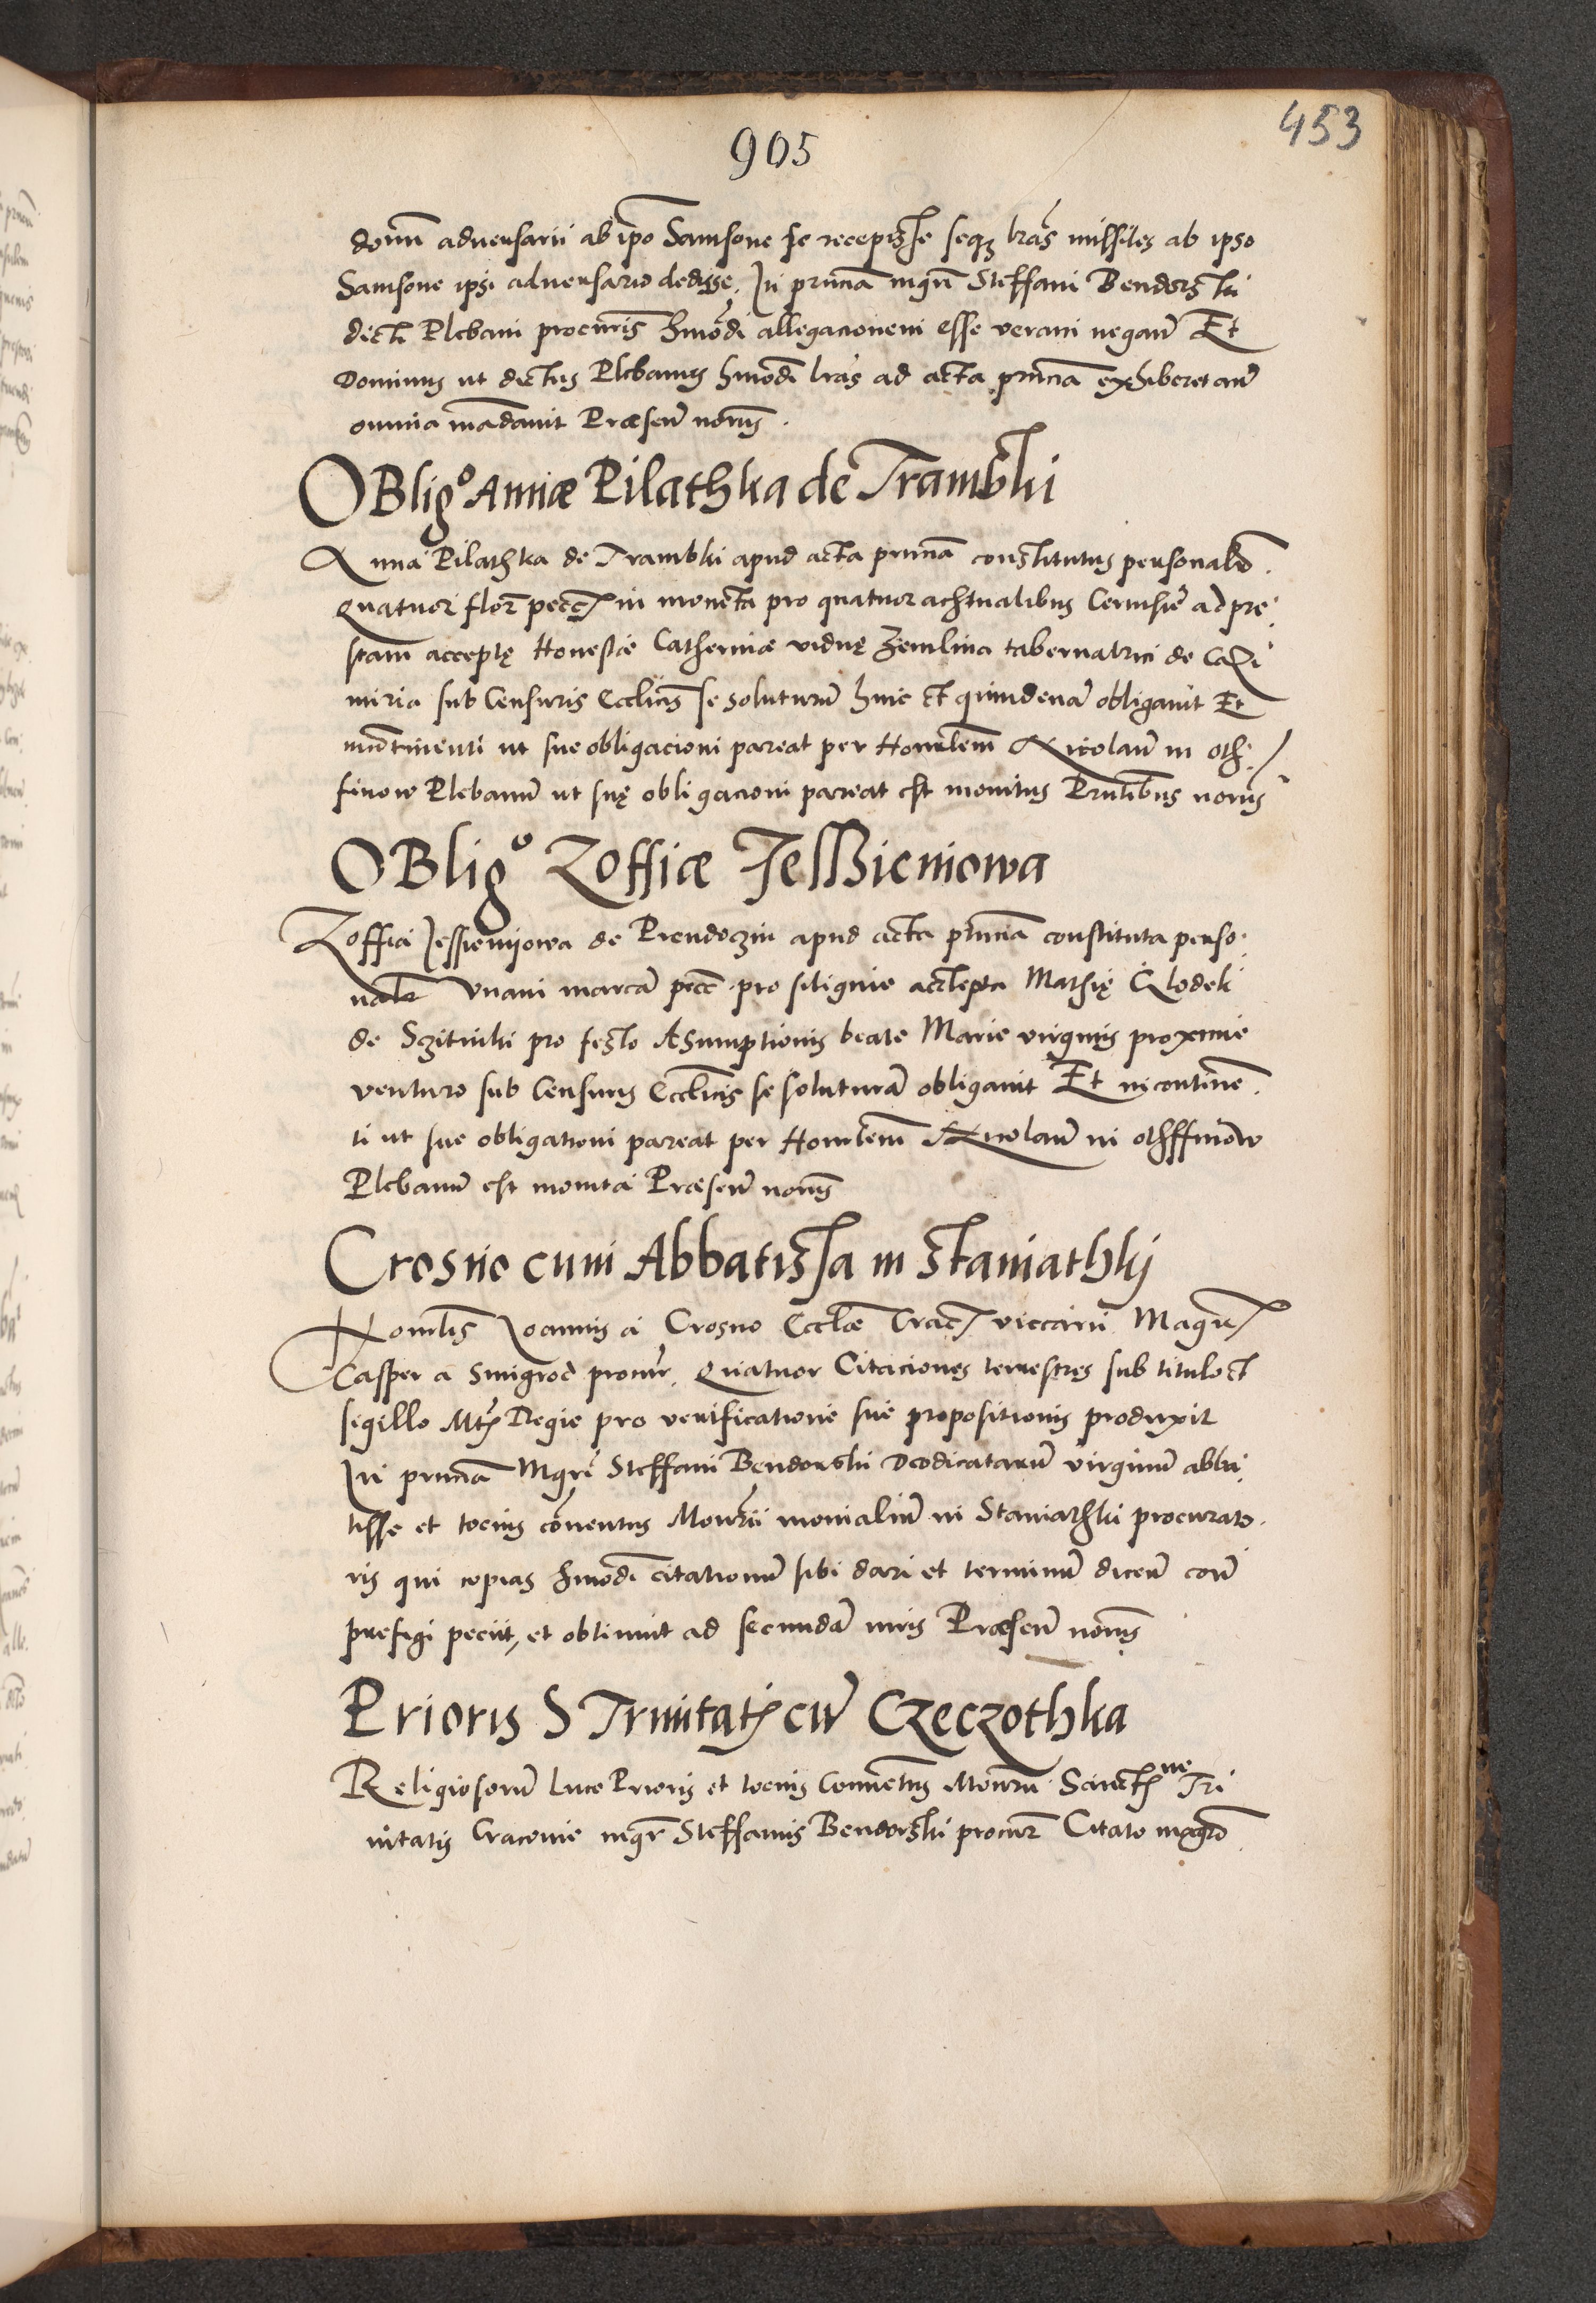 453
905
domu adversarii ab ipo Samsone se recepisse seqȝ lras missiles ab ipso
Samsone ipsi adversario dedisse. In pnciа mgri Steffani Bendorski
dicti Plebani procuris hmodi allegacionem esse veram negan Et
Dominus ut dictus Plebanus hmodi lras ad acta pncia exhiberet
omnia mandavit Præsen noris.
OBligo Annæ Pilathka de Trambki
Anna Pilathka de Trambki apud acta pncia constitutus personalr.
Quatuor flor pecc in moneta pro quatuor achtualibus Cervisie ad pre
stam acceptę Honestæ Catherinæ viduę Zemlina tabernatrici de Cazi
miria sub Censuris Ecclicis se soluturum hinc et quindena obligavit Et
incontinenti ut sue obligacioni pareat per Honorabilem Nicolaum in oth
finow Plebanum ut suę obligacioni pareat est monitus Pntibus noris
OBligo Zoffiæ Jessieniowa
Zoffia Jessieniowa de Prendoczin apud acta pncia constituta perso
nalr Unam marcam pecc pro siligine accepta Mathię Clodek
de Szitniki pro festo Assumptionis beate Marie virginis proxime
venturo sub Censuris Ecclicis se soluturam obligavit Et incontinen
ti ut sue obligationi pareat per Honorabilem Nicolaum in othffinow
Plebanum est monita Præsen noris
Crosno cum Abbatissa in Staniathkj
Honorabilis Joannis a Crosno Ecclæ Crac viccarii Magr
Casper a Smigrod procur. Quatuor Citaciones terrestres sub titulo et
sigillo Mtis Regie pro verificatione sue propositionis produxit
In pncia Mgri Steffani Bendorski Deodicatarum virginum abba
tisse et tocius conventus Monrii monialium in Staniathki procurato
ris qui copias hmodi citationum sibi dari et terminum dicen con
prefigi peciit, et obtinuit ad secundam iuris Præsen noris
Prioris S Trinitatis cum Czeczothka
Religiosorum Luce Prioris et tocius Conventus Monrii Sanctis ne Tri
nitatis Cracovie mgr Steffanus Bendorski procur Citato magro